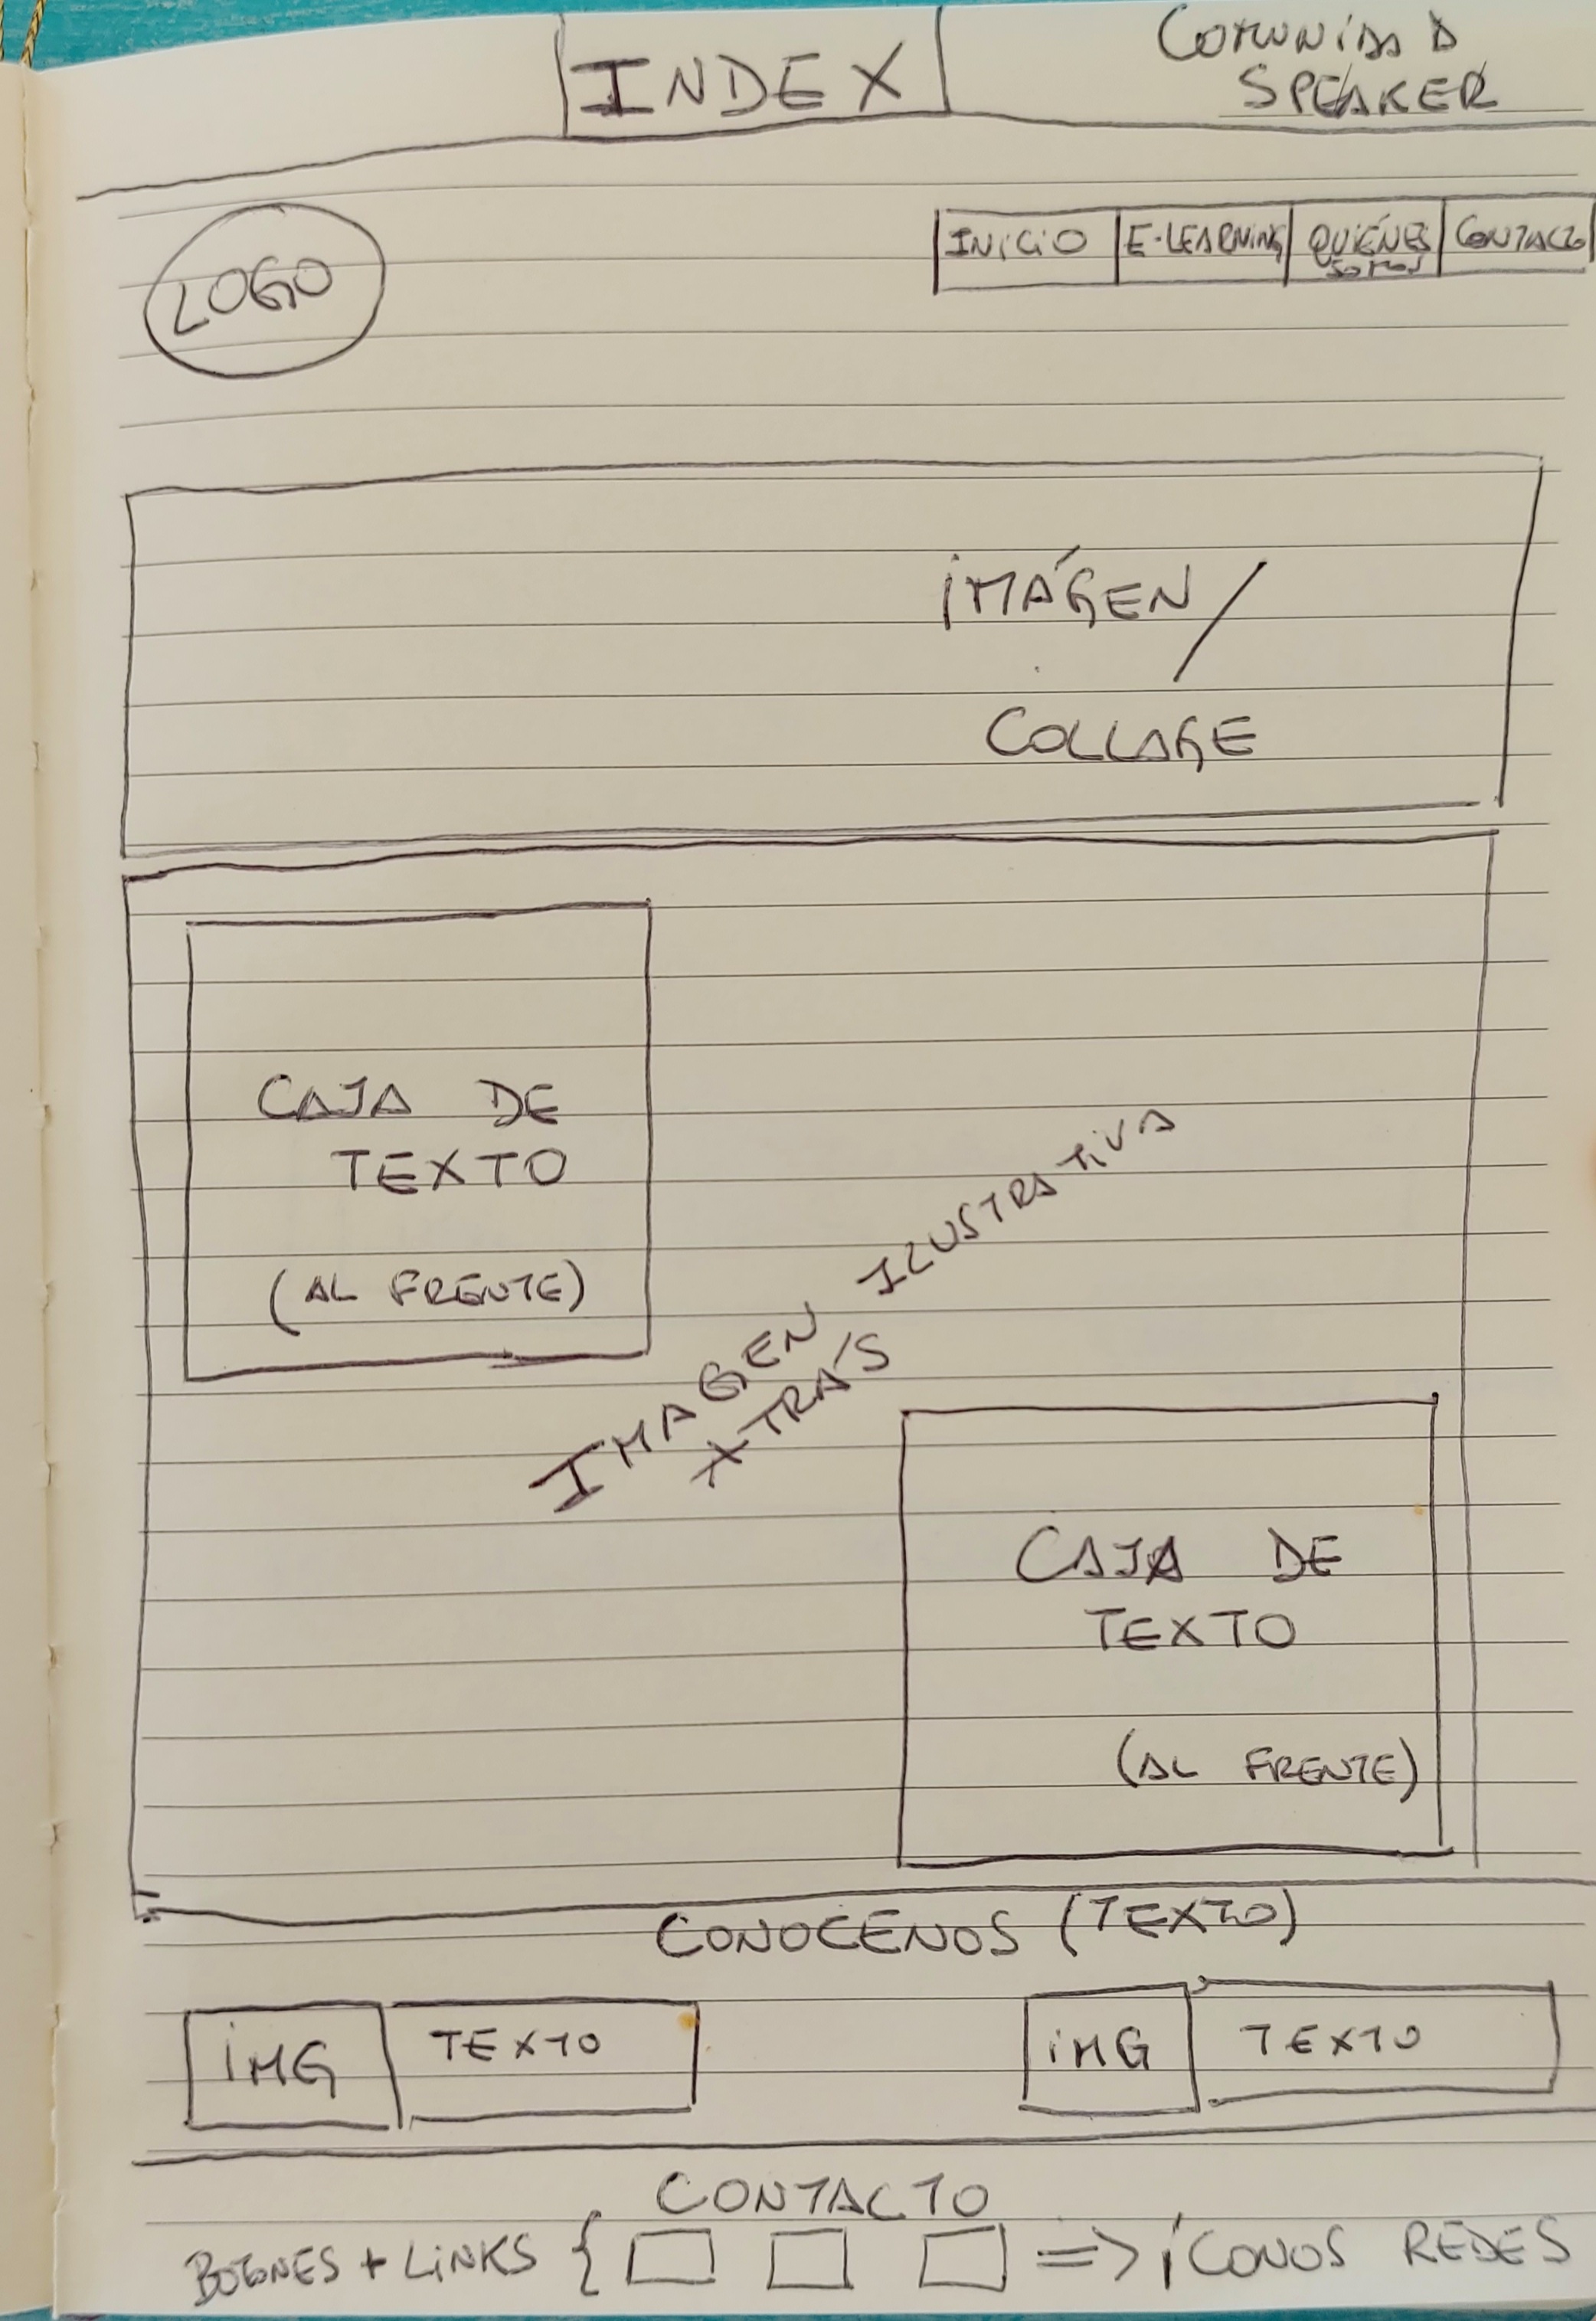 INDEX
COMUNIDAD
SPEAKER
LOGO
INICIO
E-LEARNING
QUIÉNES
SOMOS
CONTACTO
IMÁGEN /
COLLAGE
CAJA DE
TEXTO
(AL FRENTE)
IMAGEN ILUSTRATIVA
XTRÁS
CAJA DE
TEXTO
(AL FRENTE)
CONOCENOS (TEXTO)
IMG TEXTO
IMG TEXTO
CONTACTO
BOTONES + LINKS { => ÍCONOS REDES